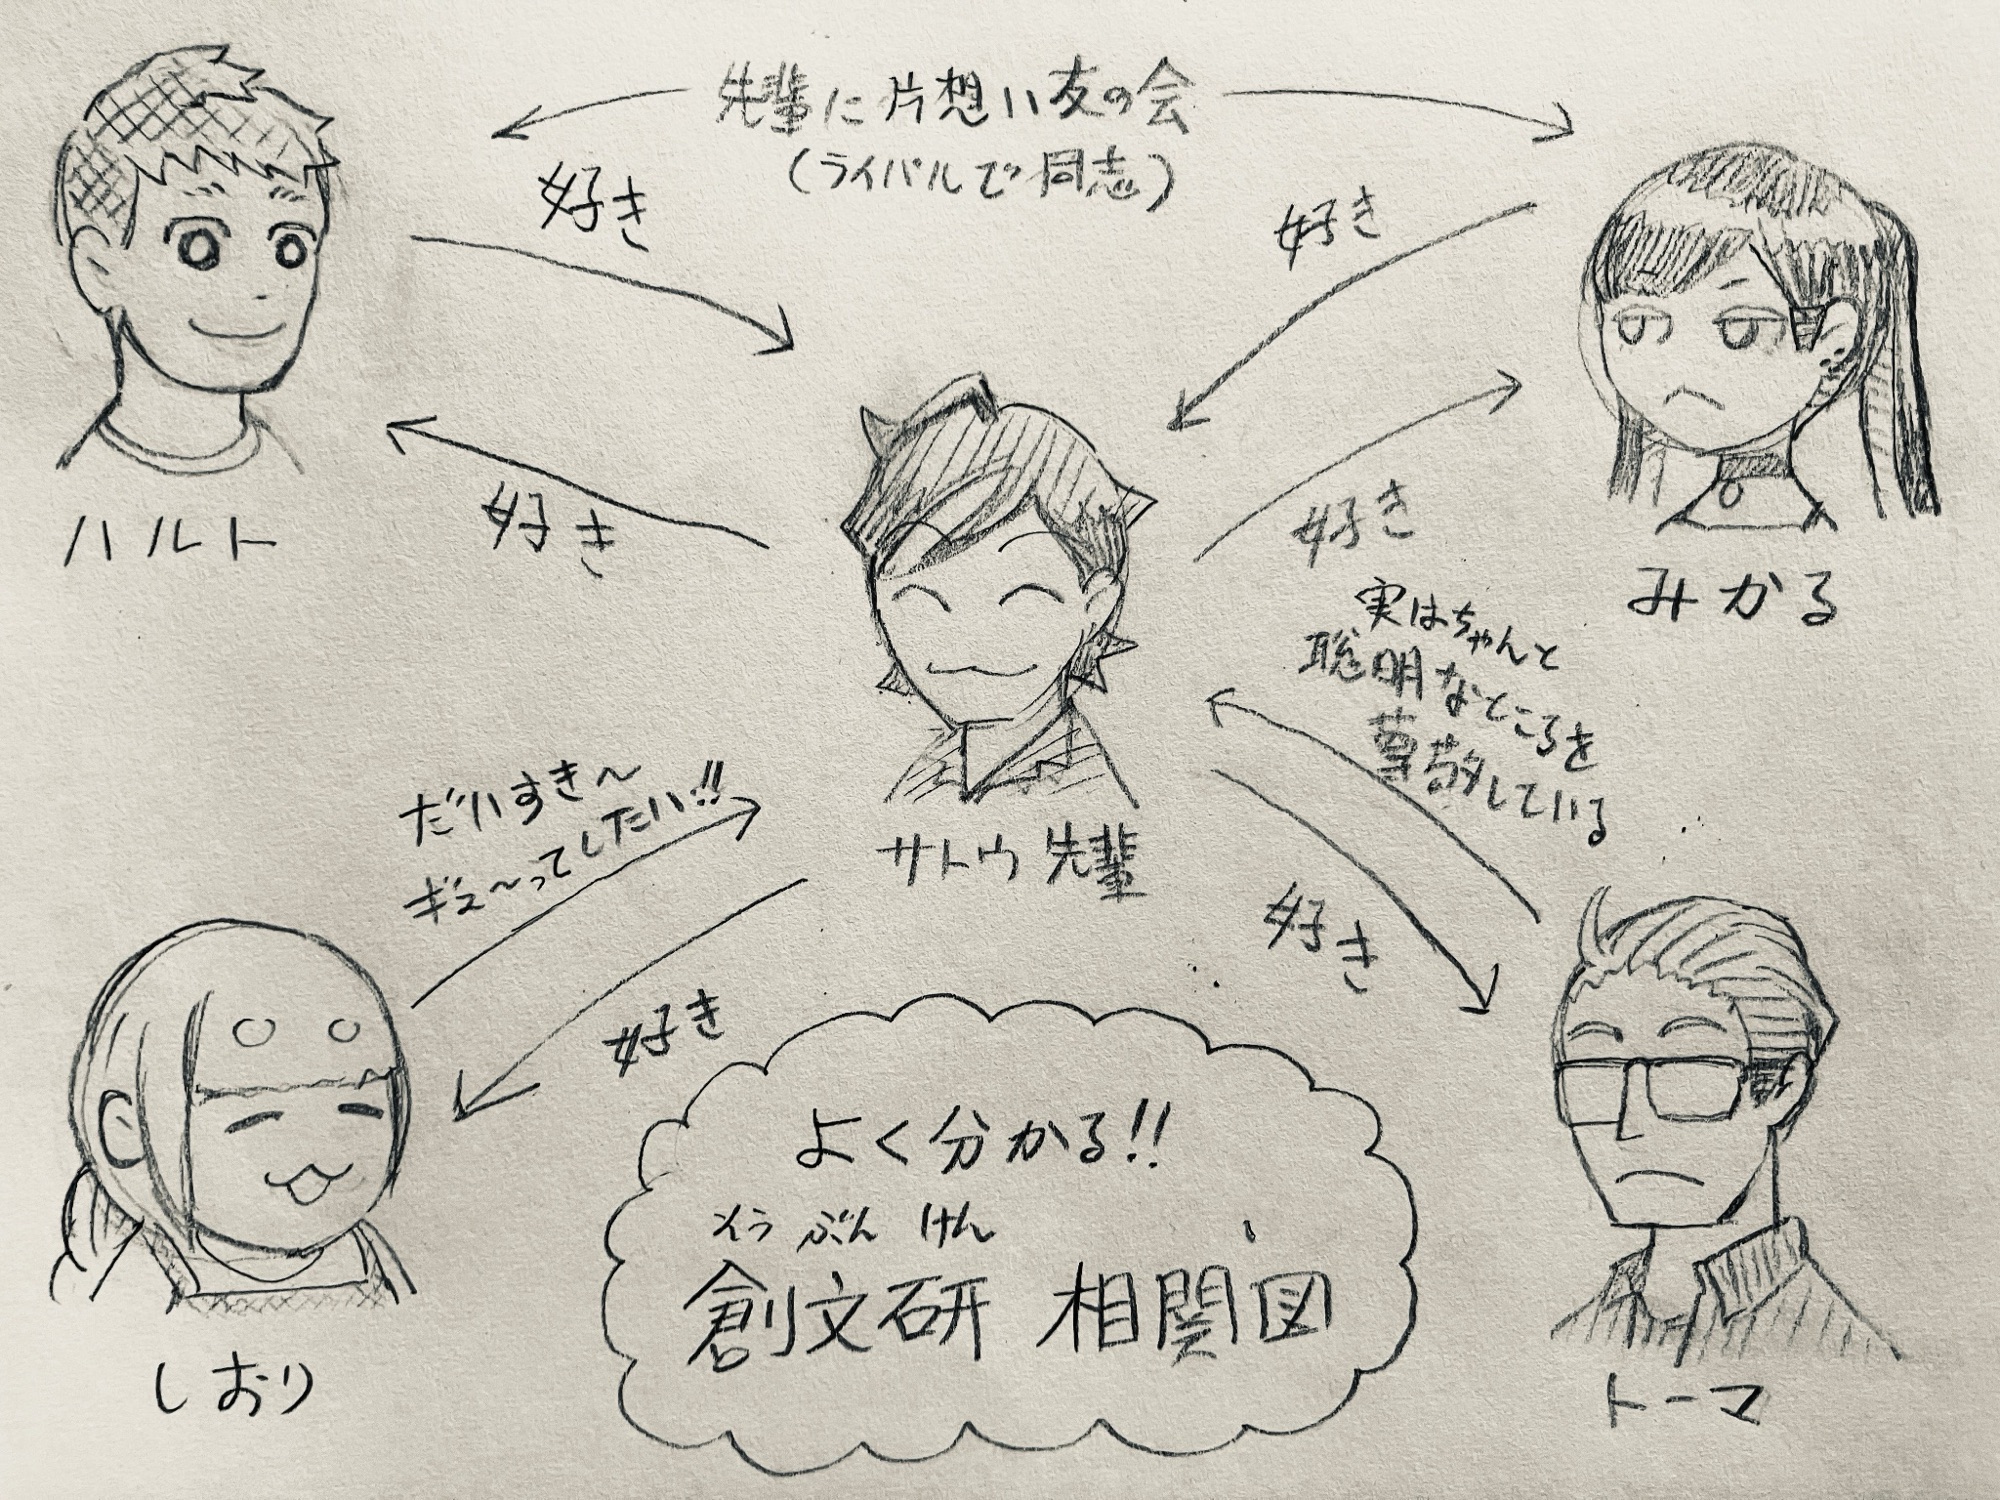 先輩に片想い友の会
(ライバルで同志)
好き
好き
ハルト
好き
好き
みかる
実はちゃんと
聡明なところを
尊敬している
サトウ先輩
だいすき〜
ギュ〜ってしたい!!
好き
好き
しおり
トーマ
よく分かる!!
そうぶんけん
創文研 相関図